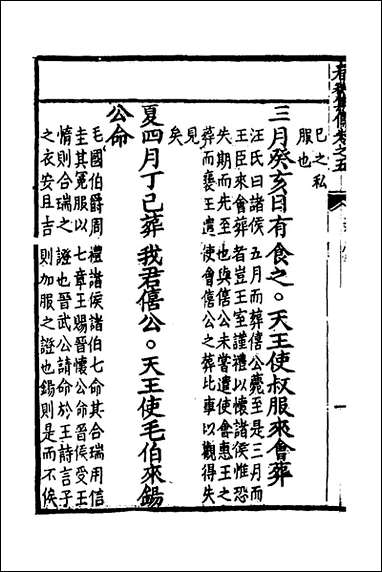 春秋集傳卷之五
巳之私
服也
三月癸亥日有食之。天王使叔服來會葬
汪氏曰諸侯五月而葬僖公薨至是三月而
王臣來會葬者豈王室謹禮以懷諸侯惟恐
失期而先至也與僖公未嘗遣使會惠王之
葬而襄王遣使會僖公之葬比事以觀得失
見
矣
夏四月丁巳葬我君僖公。天王使毛伯來錫
公命
毛國伯爵周禮諸侯諸伯七命其合瑞用信
圭其冕服以七章王賜晉懷公命晉侯受玉
惰則合瑞之證也晉武公請命於王詩言子
之衣安且吉則加服之證也錫則是而不俟